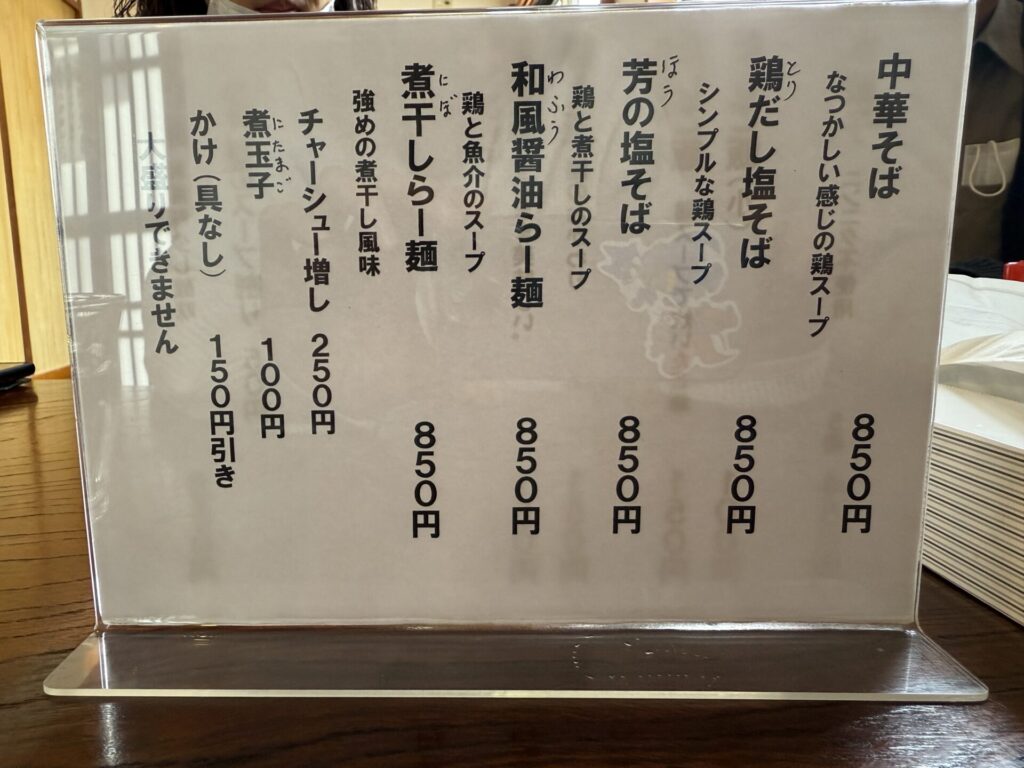 中華そば 850円
なつかしい感じの鶏スープ
鶏だし塩そば 850円
とり
シンプルな鶏スープ
芳の塩そば 850円
ほう
鶏と煮干しのスープ
和風醤油らー麺 850円
わふう
鶏と魚介のスープ
煮干しらー麺 850円
にぼ
強めの煮干し風味
チャーシュー増し 250円
煮玉子 100円
にたまご
かけ(具なし) 150円引き
大盛りできません